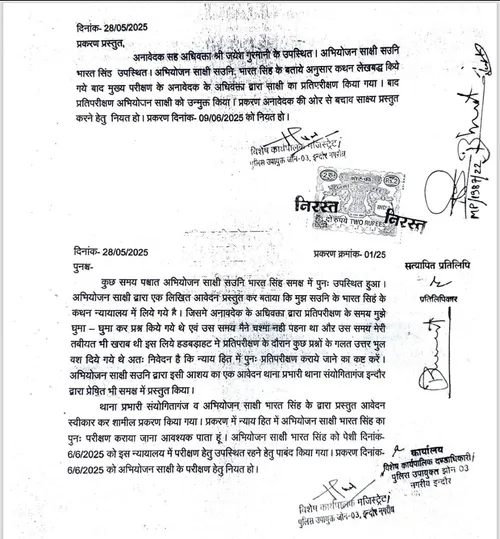 दिनांक- 28/05/2025
प्रकरण प्रस्तुत,
अनावेदक सह अधिवक्ता श्री जयेश गुरनानी के उपस्थित। अभियोजन साक्षी सउनि
भारत सिंह उपस्थित। अभियोजन साक्षी सउनि, भारत सिंह के बताये अनुसार कथन लेखबद्ध किये
गये बाद मुख्य परीक्षण के अनावेदक के अधिवक्ता द्वारा साक्षी का प्रतिपरीक्षण किया गया। बाद
प्रतिपरीक्षण अभियोजन साक्षी को उन्मुक्त किया। प्रकरण अनावेदक की ओर से बचाव साक्ष्य प्रस्तुत
करने हेतु नियत हो। प्रकरण दिनांक-09/06/2025 को नियत हो।
विशेष कार्यपालक मजिस्ट्रेट
पुलिस उपायुक्त जोन-03, इन्दौर नगरीय
MP/1987/22
निरस्त
दो रुपये TWO RUPEES
निरस्त
दिनांक- 28/05/2025
प्रकरण क्रमांक- 01/25
पुनश्च-
कुछ समय पश्चात अभियोजन साक्षी सउनि भारत सिंह समक्ष में पुनः उपस्थित हुआ।
अभियोजन साक्षी द्वारा एक लिखित आवेदन प्रस्तुत कर बताया कि मुझ सउनि के भारत सिहं के
कथन न्यायालय में लिये गये है। जिसमे अनावेदक के अधिवक्ता द्वारा प्रतिपरीक्षण के समय मुझे
घुमा – घुमा कर प्रश्न किये गये थे एवं उस समय मैने चश्मा नही पहना था और उस समय मेरी
तबीयत भी खराब थी इस लिये हडबड़ाहट मे प्रतिपरीक्षण के दौरान कुछ प्रश्नो के गलत उत्तर भुल
वश दिये गये थे अतः निवेदन है कि न्याय हित में पुनः प्रतिपरीक्षण कराये जाने का कष्ट करें।
अभियोजन साक्षी सउनि द्वारा इसी आशय का एक आवेदन थाना प्रभारी थाना संयोगितागंज इन्दौर
द्वारा प्रेषित भी समक्ष में प्रस्तुत किया।
थाना प्रभारी संयोगितागंज व अभियोजन साक्षी भारत सिंह के द्वारा प्रस्तुत आवेदन
स्वीकार कर शामील प्रकरण किया गया। प्रकरण में न्याय हित में अभियोजन साक्षी भारत सिंह का
पुनः परीक्षण कराया जाना आवश्यक पाता हूं। अभियोजन साक्षी भारत सिंह को पेशी दिनांक-
6/6/2025 को इस न्यायालय में परीक्षण हेतु उपस्थित रहने हेतु पाबंद किया गया। प्रकरण दिनांक-
6/6/2025 को अभियोजन साक्षी के परीक्षण हेतु नियत हो।
विशेष कार्यपालक मजिस्ट्रेट
पुलिस उपायुक्त जोन-03, इन्दौर नगरीय
सत्यापित प्रतिलिपि
प्रतिलिपिकार
कार्यालय
विशेष कार्यपालिक दण्डाधिकारी
पुलिस उपायुक्त झोन 03
नगरीय इन्दौर